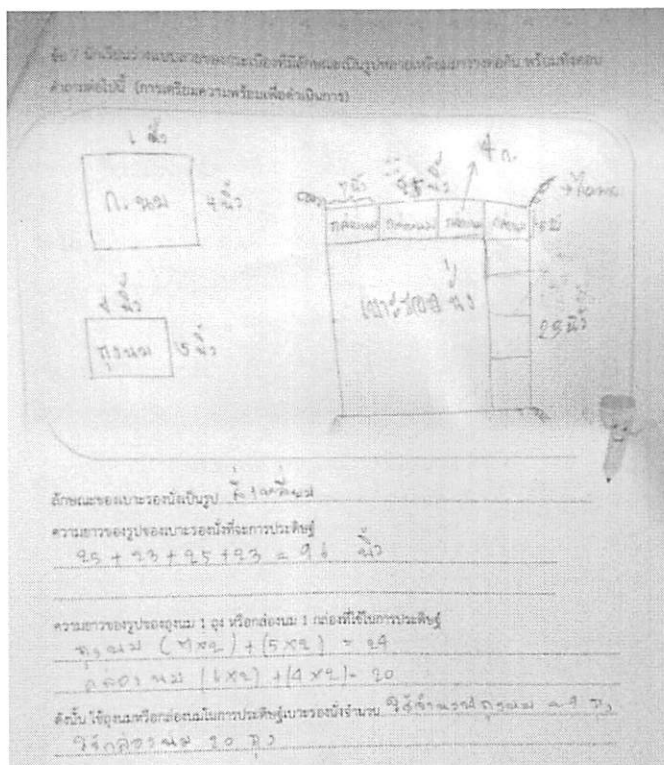 ข้อ 7 นักเรียนร่างแบบลายของกระเบื้องที่มีลักษณะเป็นรูปหลายเหลี่ยมมาวางต่อกัน พร้อมทั้งตอบ
คำถามต่อไปนี้ (การเตรียมความพร้อมเพื่อดำเนินการ)
6 นิ้ว
ก. นม
4 นิ้ว
นิ้ว
ถุงนม
5 นิ้ว
7 นิ้ว
25 นิ้ว
4 ก.
กล่องนม กล่องนม กล่องนม กล่องนม
เบาะรองนั่ง
นิ้ว
ลักษณะของเบาะรองนั่งเป็นรูป สี่เหลี่ยม
ความยาวของรูปของเบาะรองนั่งที่จะการประดิษฐ์
25 + 23 + 25 + 23 = 96 นิ้ว
ความยาวของรูปของถุงนม 1 ถุง หรือกล่องนม 1 กล่องที่ใช้ในการประดิษฐ์
ถุงนม (7×2) + (5×2) = 24
กล่องนม (6×2) + (4×2) = 20
ดังนั้น ใช้ถุงนมหรือกล่องนมในการประดิษฐ์เบาะรองนั่งจำนวน ใช้จำนวนถุงนม = 4 ถุง
ใช้กล่องนม 20 ถุง